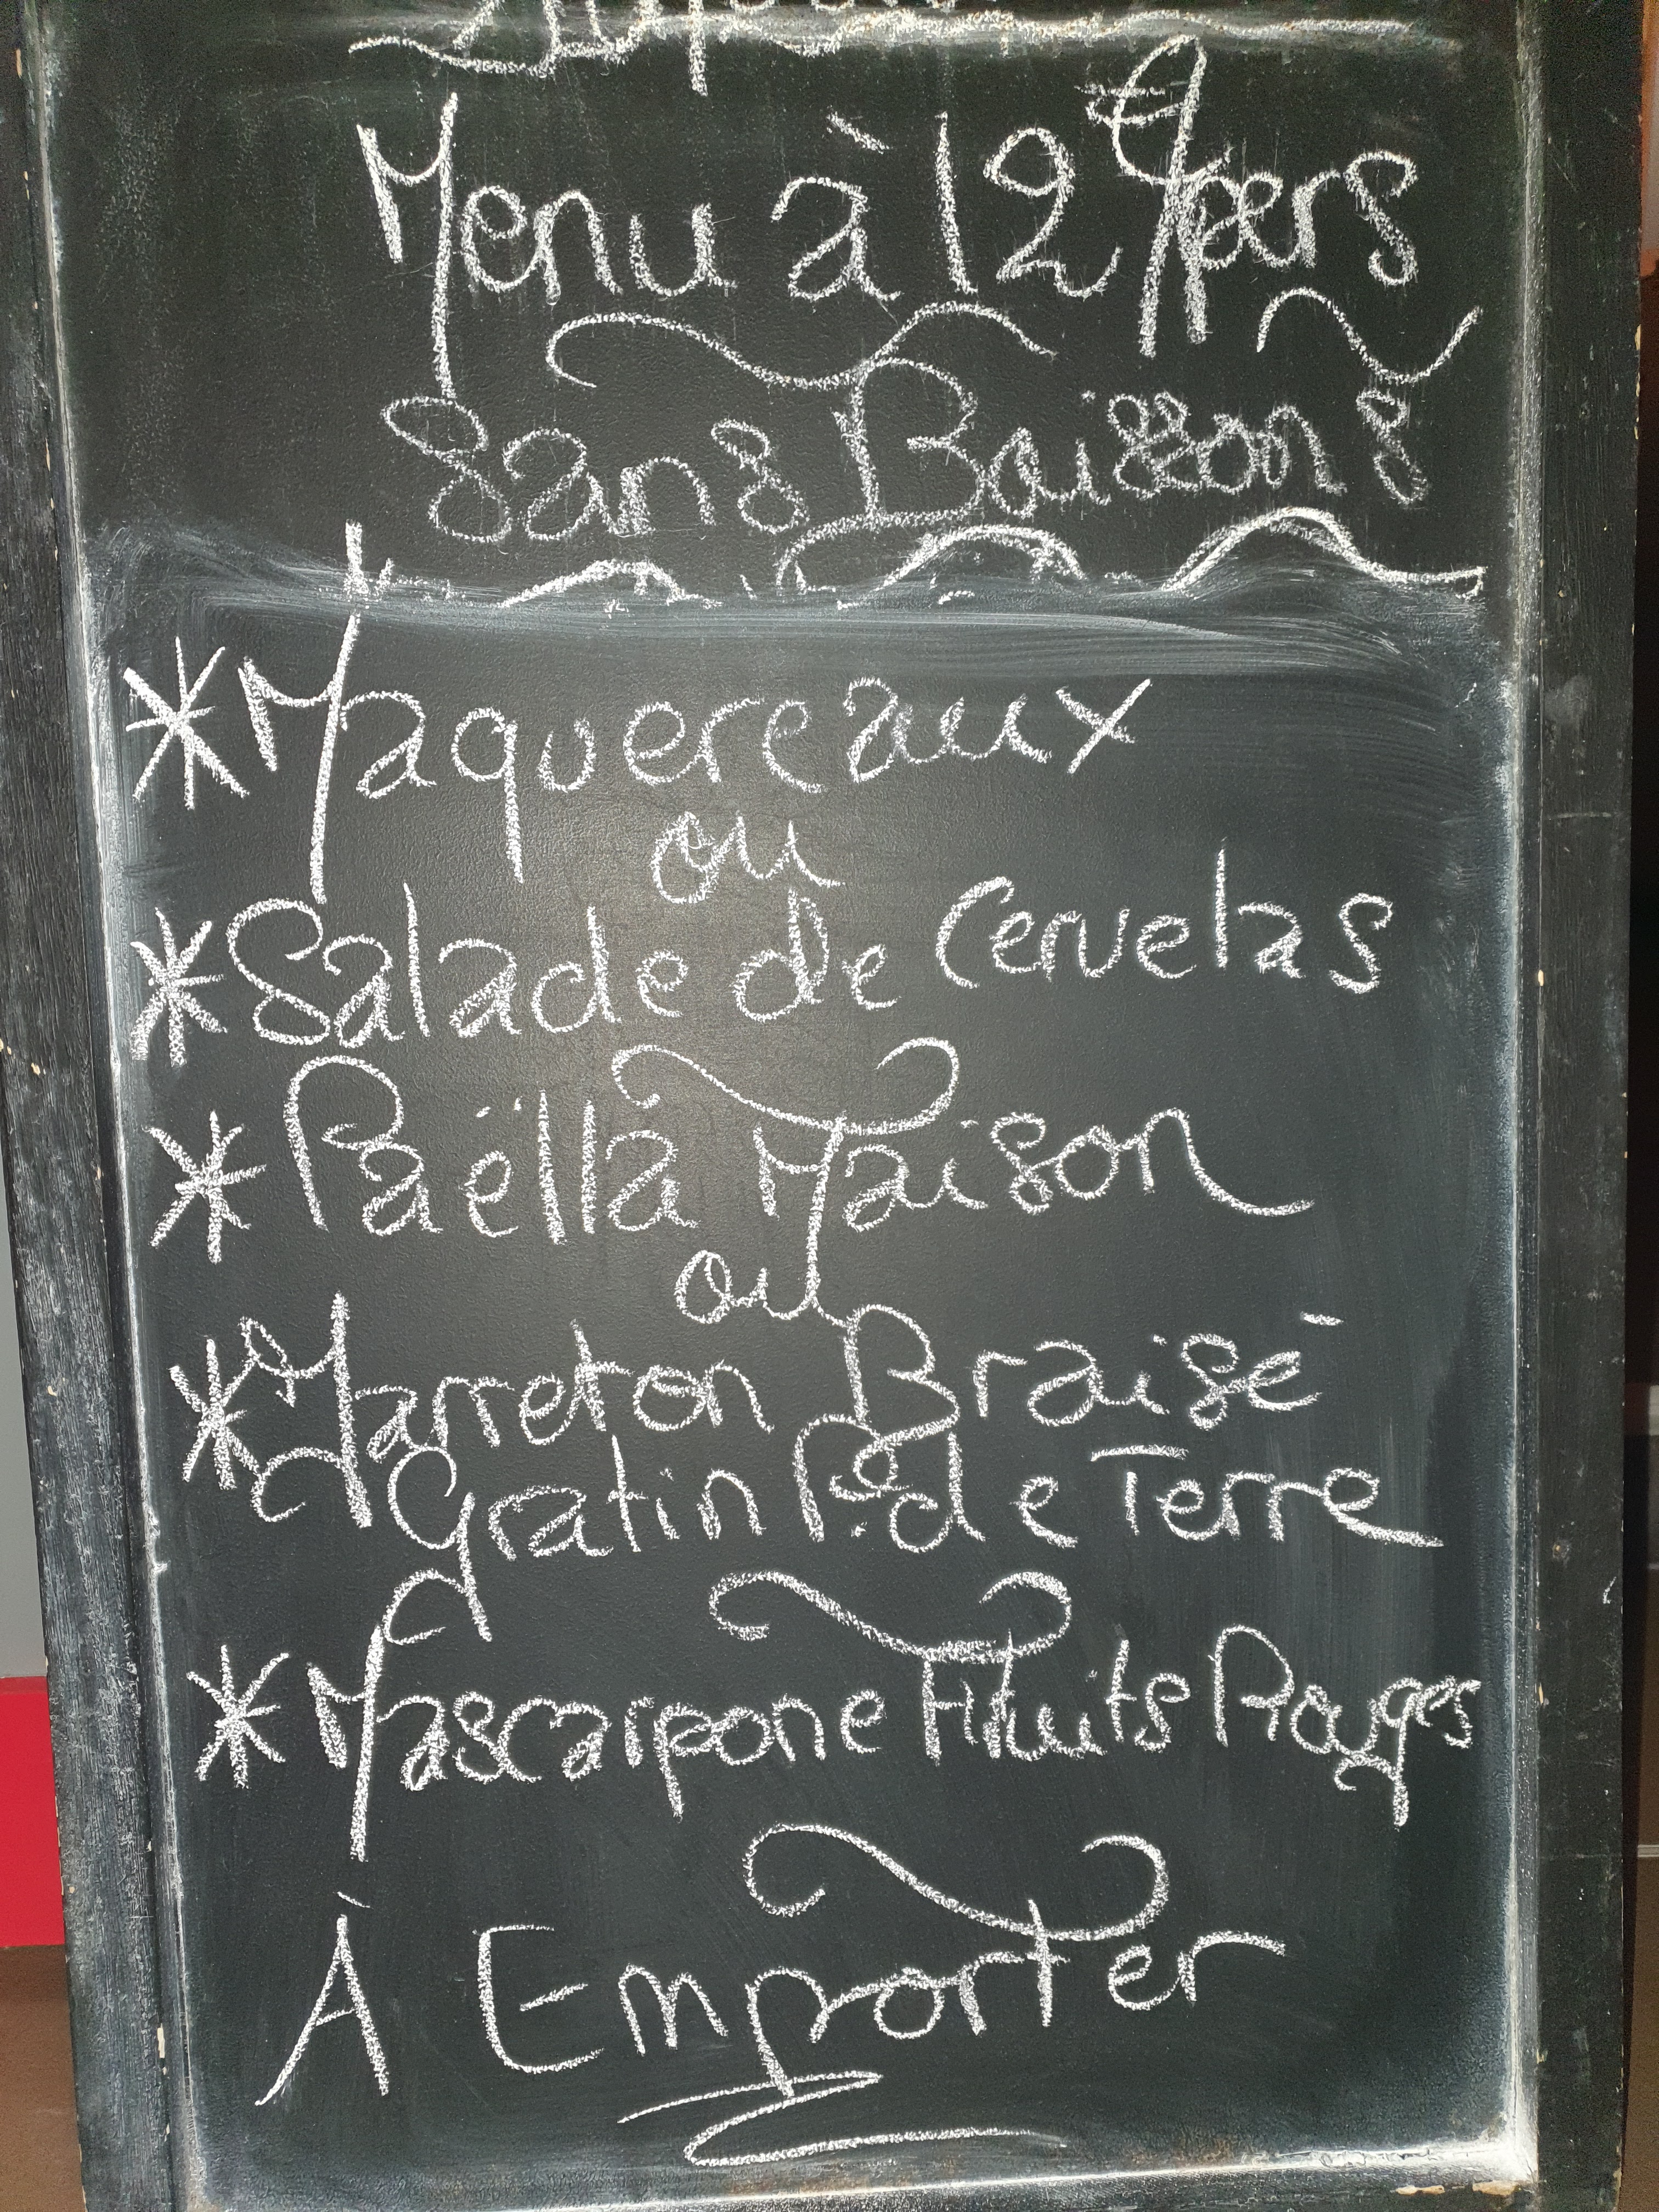 Menu à 12€/pers
Sans Boissons
*Maquereaux
ou
*Salade de Cervelas
*Paëlla Maison
ou
*Jarreton Braisé
Gratin P. de Terre
*Mascarpone Fruits Rouges
À Emporter